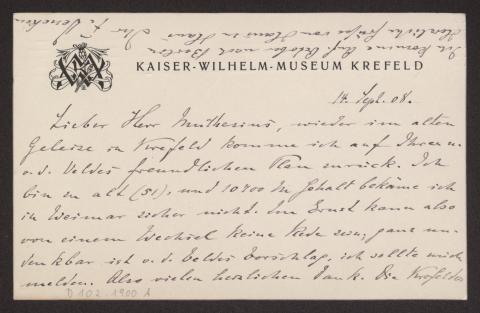 KAISER-WILHELM-MUSEUM KREFELD
14. Sept. 08.
Lieber Herr Muthesius, wieder im alten
Geleise in Krefeld komme ich auf Ihren u.
v. d. Veldes freundlichen Plan zurück. Ich
bin zu alt (51), und 10800 M Gehalt bekäme ich
in Weimar sicher nicht. Im Ernst kann also
von einem Wechsel keine Rede sein; ganz un-
denkbar ist v. d. Veldes Vorschlag, ich sollte mich
melden. Also vielen herzlichen Dank. Die Krefelder
D 102-1900 A
Ich komme Anf. Oktober nach Berlin
Herzliche Grüße von Haus zu Haus
Ihr F. Deneken